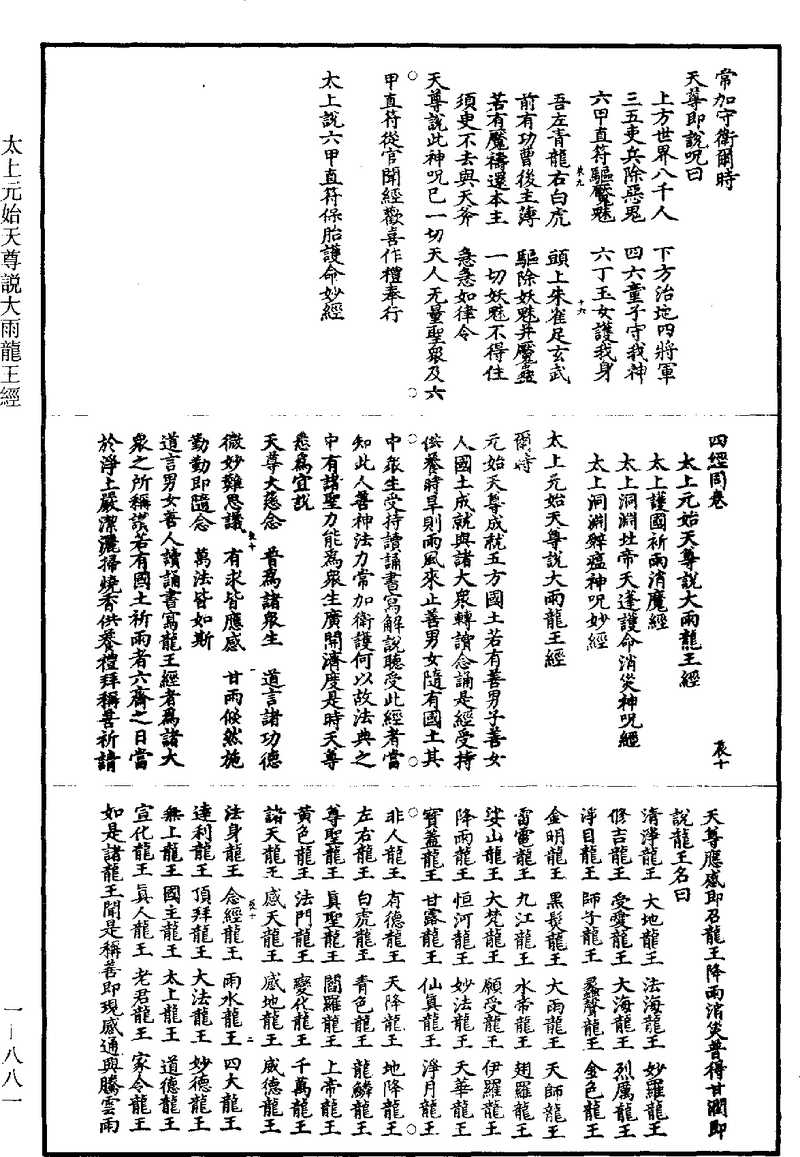 常加守衛爾時
天尊即說呪曰
上方世界八千人　下方治地四將軍
三五吏兵除惡鬼　四六童子守我神
六甲直符驅魘魅　六丁玉女護我身
吾左青龍右白虎　頭上朱雀足玄武
前有功曹後主簿　驅除妖魅并魘蠱
若有魘禱還本主　一切妖魅不得住
須臾不去與天斧　急急如律令
天尊說此神呪已一切天人无量聖眾及六
甲直符從官聞經歡喜作禮奉行
太上說六甲直符保胎護命妙經
四經同卷
太上元始天尊說大雨龍王經
太上護國祈雨消魔經
太上洞淵北帝天蓬護命消災神呪經
太上洞淵辭瘟神呪妙經
太上元始天尊說大雨龍王經
爾時
元始天尊成就五方國土若有善男子善女
人國土成就與諸大眾轉讀念誦是經受持
供養時旱則雨風來止善男女隨有國土其
中眾生受持讀誦書寫解說聽受此經者當
知此人善神法力常加衛護何以故法典之
中有諸聖力能為眾生廣開濟度是時天尊
悉為宣說
天尊大慈念　普為諸眾生　道言諸功德
微妙難思議　有求皆應感　甘雨倏然施
勤勤即隨念　萬法皆如斯
道言男女善人讀誦書寫龍王經者為諸大
眾之所稱讚若有國土祈雨者六齋之日當
於淨土嚴潔灑掃燒香供養禮拜稱善祈請
天尊應感即召龍王降雨消災普得甘潤即
說龍王名曰
清淨龍王　大地龍王　法海龍王　妙羅龍王
修吉龍王　受愛龍王　大海龍王　烈厲龍王
淨目龍王　師子龍王　聲龍王　金色龍王
金明龍王　黑髮龍王　大雨龍王　天師龍王
雷電龍王　九江龍王　水帝龍王　翅羅龍王
娑山龍王　大梵龍王　願受龍王　伊羅龍王
降雨龍王　恒河龍王　妙法龍王　天華龍王
寶蓋龍王　甘露龍王　仙真龍王　淨月龍王
非人龍王　有德龍王　天降龍王　地降龍王
左右龍王　白虎龍王　青色龍王　龍鱗龍王
尊聖龍王　真聖龍王　閻羅龍王　上帝龍王
黃色龍王　法門龍王　變化龍王　千萬龍王
諸天龍王　感天龍王　感地龍王　感德龍王
法身龍王　念經龍王　雨水龍王　四大龍王
達利龍王　頂拜龍王　大法龍王　妙德龍王
無上龍王　國主龍王　太上龍王　道德龍王
宣化龍王　真人龍王　老君龍王　家令龍王
如是諸龍王聞是稱善即現感通興騰雲雨
太上元始天尊説大雨龍王經
一－八八一